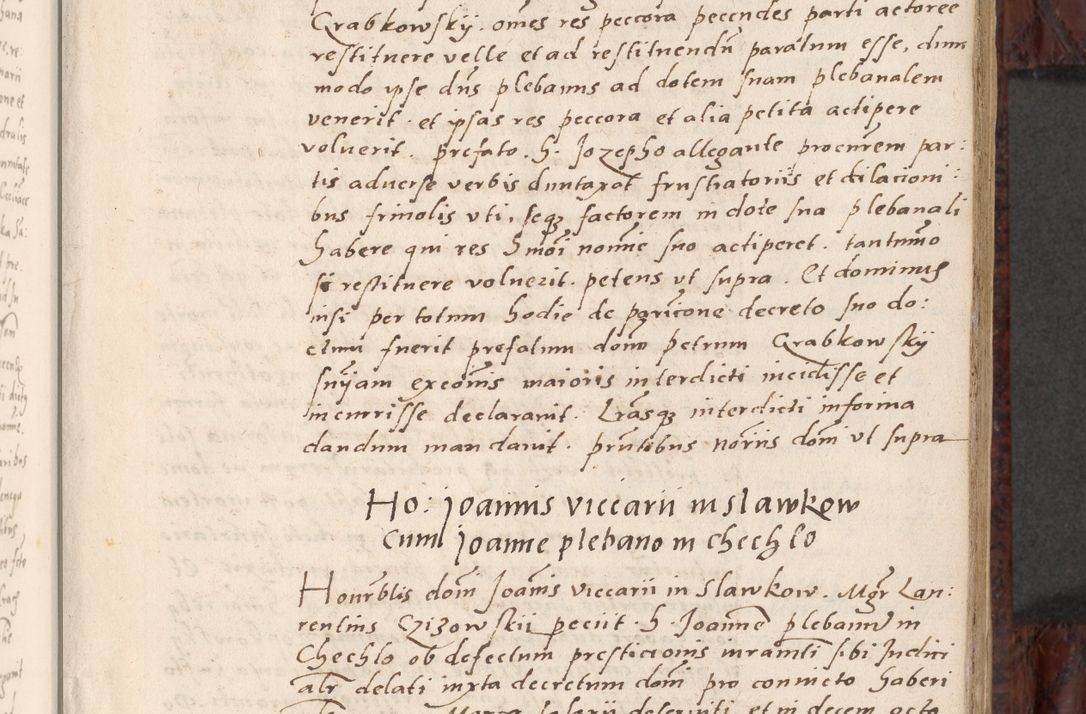 Grabkowskÿ. omes res peccora pecudes parti actoree
restituere velle et ad restituendũ paratum esse, dum
modo ipse dns plebanus ad dotem suam plebanalem
venerit. et ipsas res peccora et alia petita accipere
voluerit. prefato. h. Jozepho allegante procurem par:
tis adverse verbis duntaxat frustratoriis et dilacioni:
bus frivolis uti, seqz factorem in dote sua plebanali
habere qui res hmoi nomie suo acciperet. tantummo
si restituere voluerit. petens ut supra. Et dominus
nisi per totum hodie de paricone decreto suo do:
ctum fuerit prefatum dom petrum Grabkowskÿ
snÿam exconis maioris interdicti incidisse et
incurrisse declaravit. Lrasqz interdicti in forma
dandum mandavit. pntibus noriis domi ut supra
Ho: Joannis viccarii in Slawkow
cum Joanne plebano in Chechlo
Honrblis domi Joanis viccarii in Slawkow. Mgr Lau:
rentius Czizowskii peciit. h. Joannē plebanū in
Chechlo ob defectum presticionis iuramti sibi Judici
alr delati iuxta decretum domi pro convicto haberi